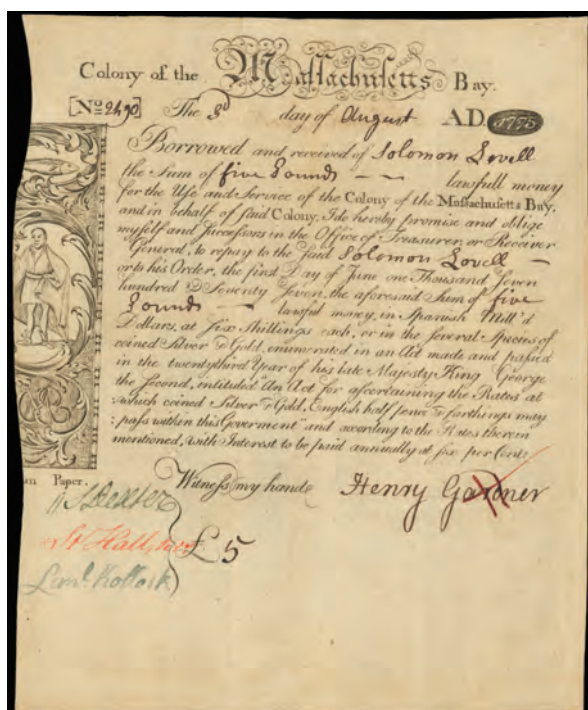 Colony of the Massachusetts Bay.
[No 2490] The 3d day of August AD. 1775
Borrowed and received of Solomon Lovell
the Sum of five Pounds — — lawfull money
for the Use and Service of the Colony of the Massachusetts Bay,
and in behalf of said Colony. I do hereby promise and oblige
myself and successors in the Office of Treasurer, or Receiver
General, to repay to the said Solomon Lovell —
or to his Order, the first Day of June one Thousand Seven
hundred & Seventy Seven, the aforesaid Sum of five
Pounds — lawful money, in Spanish Mill'd
Dollars, at six Shillings each, or in the several Species of
coined Silver & Gold, enumerated in an Act made and passed
in the twentythird Year of his late Majesty King George
the Second, intituled "An Act for ascertaining the Rates at
:which coined Silver & Gold, English half pence & farthings may
:pass within this Goverment" and according to the Rates therein
mentioned, with Interest to be paid annually at six per Cent.
Paper.
Witness my hand Henry Gardner
S Dexter
£5